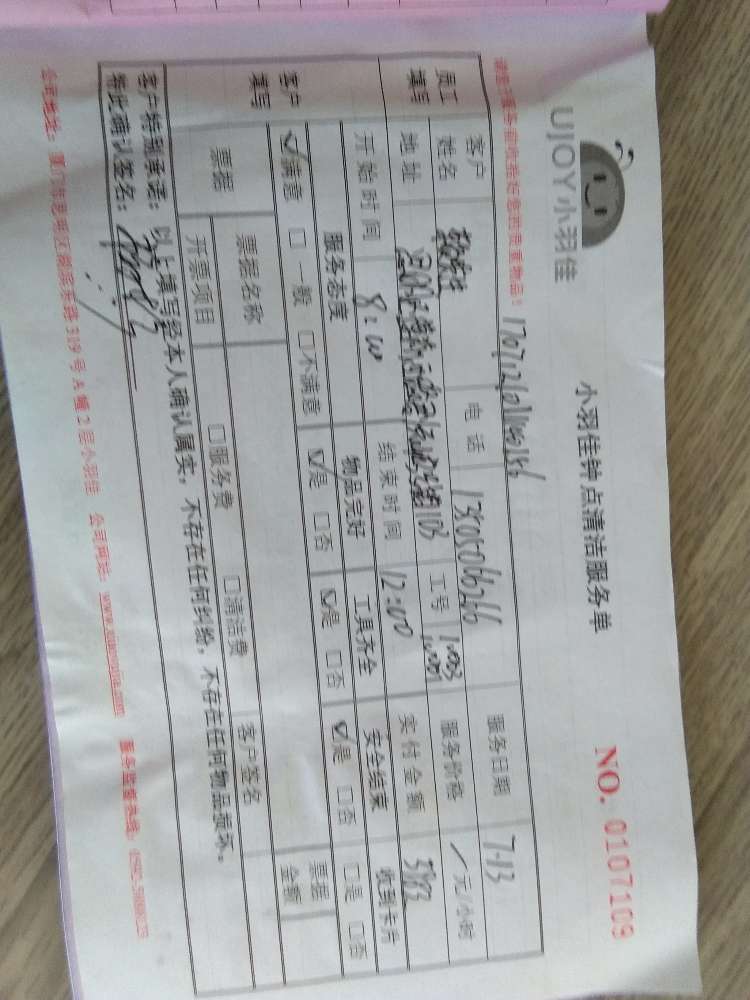 UJOY小羽佳
小羽佳钟点清洁服务单
NO. 0107109
员工
填写
客户
姓名
电话
13505066266
服务日期
7-13
地址
工号
1003
1001
服务价格
/ 元/小时
开始时间
8:00
结束时间
12:00
实付金额
383
客户
填写
服务态度
物品完好
工具齐全
安全结束
收到卡片
☑满意 □一般 □不满意
☑是 □否
☑是 □否
☑是 □否
□是 □否
票据
票据名称
客户签名
票据
金额
开票项目
□服务费 □清洁费
客户特别承诺：以上填写经本人确认属实，不存在任何纠纷，不存在任何物品损坏。
特此确认签名：
公司地址：厦门市思明区湖滨东路319号A幢2层小羽佳 公司网站：www.xiaoyujia.com 服务监督热线：